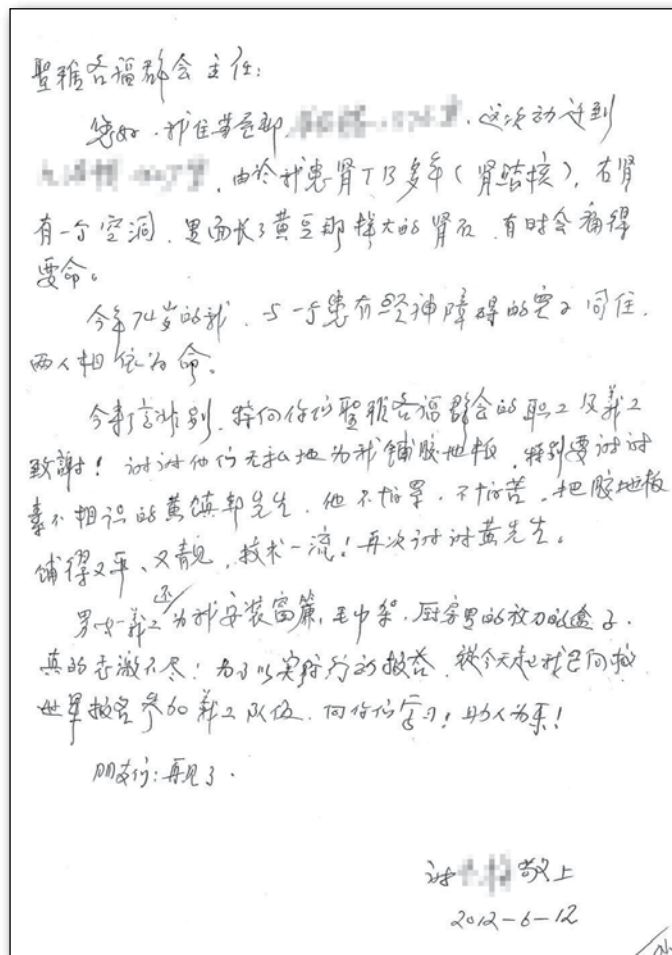 聖雅各福群会主任:
您好.我住華荳邨,这次动迁到
,由於我患肾TB多年(肾结核),右肾
有一个空洞,里面长了黄豆那样大的肾石,有时会痛得
要命。
今年74岁的我,与一个患有经神障碍的男子同住,
两人相依为命。
今来,特向你们聖雅各福群会的职工及義工
致謝!谢谢他们无私地为我铺胶地板,特别要谢谢
素不相识的黄镇邦先生,他不怕累,不怕苦,把胶地板
铺得又平、又靚,技术一流!再次谢谢黄先生。
男女義工还为我安装窗簾,毛巾架,厨房里的放刀的盒子,
真的感激不尽!为了以实际行动报答,從今天起我已向救
世軍报名参加義工队伍,向你们学习!助人为乐!
朋友们:再见了.
谢 敬上
2012-6-12